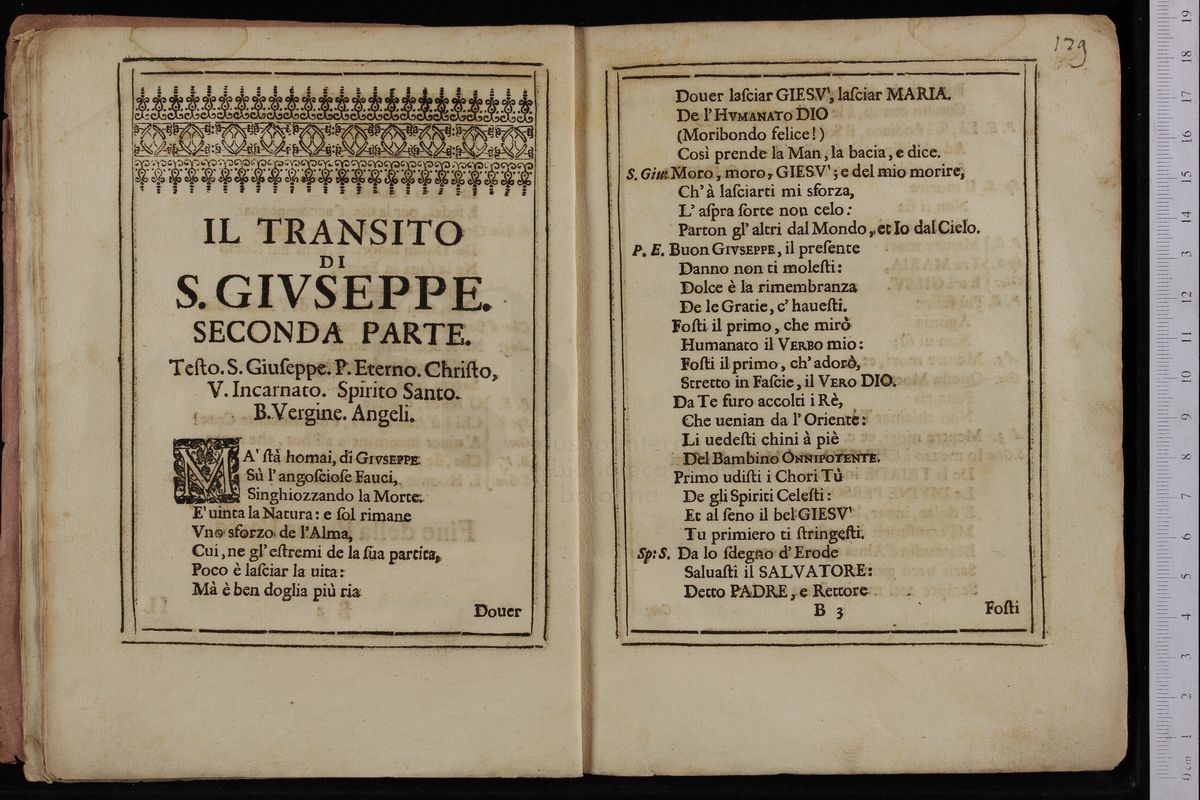 IL TRANSITO
DI
S. GIVSEPPE.
SECONDA PARTE.
Teſto. S. Giuſeppe. P. Eterno. Chriſto,
V. Incarnato. Spirito Santo.
B. Vergine. Angeli.
MA' ſtà homai, di GIVSEPPE
Sù l'angoſcioſe Fauci,
Singhiozzando la Morte.
E' uinta la Natura: e ſol rimane
Vno sforzo de l'Alma,
Cui, ne gl' eſtremi de la ſua partita,
Poco è laſciar la uita:
Mà è ben doglia più ria
Douer
129
Douer laſciar GIESV', laſciar MARIA.
De l'HVMANATO DIO
(Moribondo felice!)
Così prende la Man, la bacia, e dice.
S. Giu. Moro, moro, GIESV'; e del mio morire,
Ch' à laſciarti mi sforza,
L' aſpra ſorte non celo:
Parton gl' altri dal Mondo, et Io dal Cielo.
P. E. Buon GIVSEPPE, il preſente
Danno non ti moleſti:
Dolce è la rimembranza
De le Gratie, c' haueſti.
Foſti il primo, che mirò
Humanato il VERBO mio:
Foſti il primo, ch' adorò,
Stretto in Faſcie, il VERO DIO.
Da Te furo accolti i Rè,
Che uenian da l' Oriente:
Li uedeſti chini à piè
Del Bambino ONNIPOTENTE.
Primo udiſti i Chori Tù
De gli Spiriti Celeſti:
Et al ſeno il bel GIESV'
Tu primiero ti ſtringeſti.
Sp: S. Da lo ſdegno d' Erode
Saluaſti il SALVATORE:
Detto PADRE, e Rettore
B 3
Foſti